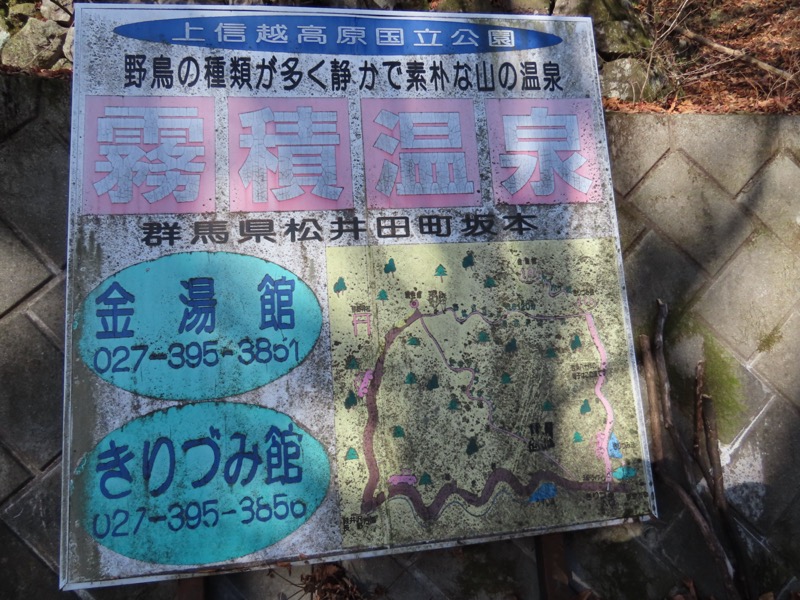 上信越高原国立公園
野鳥の種類が多く静かで素朴な山の温泉
霧積温泉
群馬県松井田町坂本
金湯館
027-395-3851
きりづみ館
027-395-3856